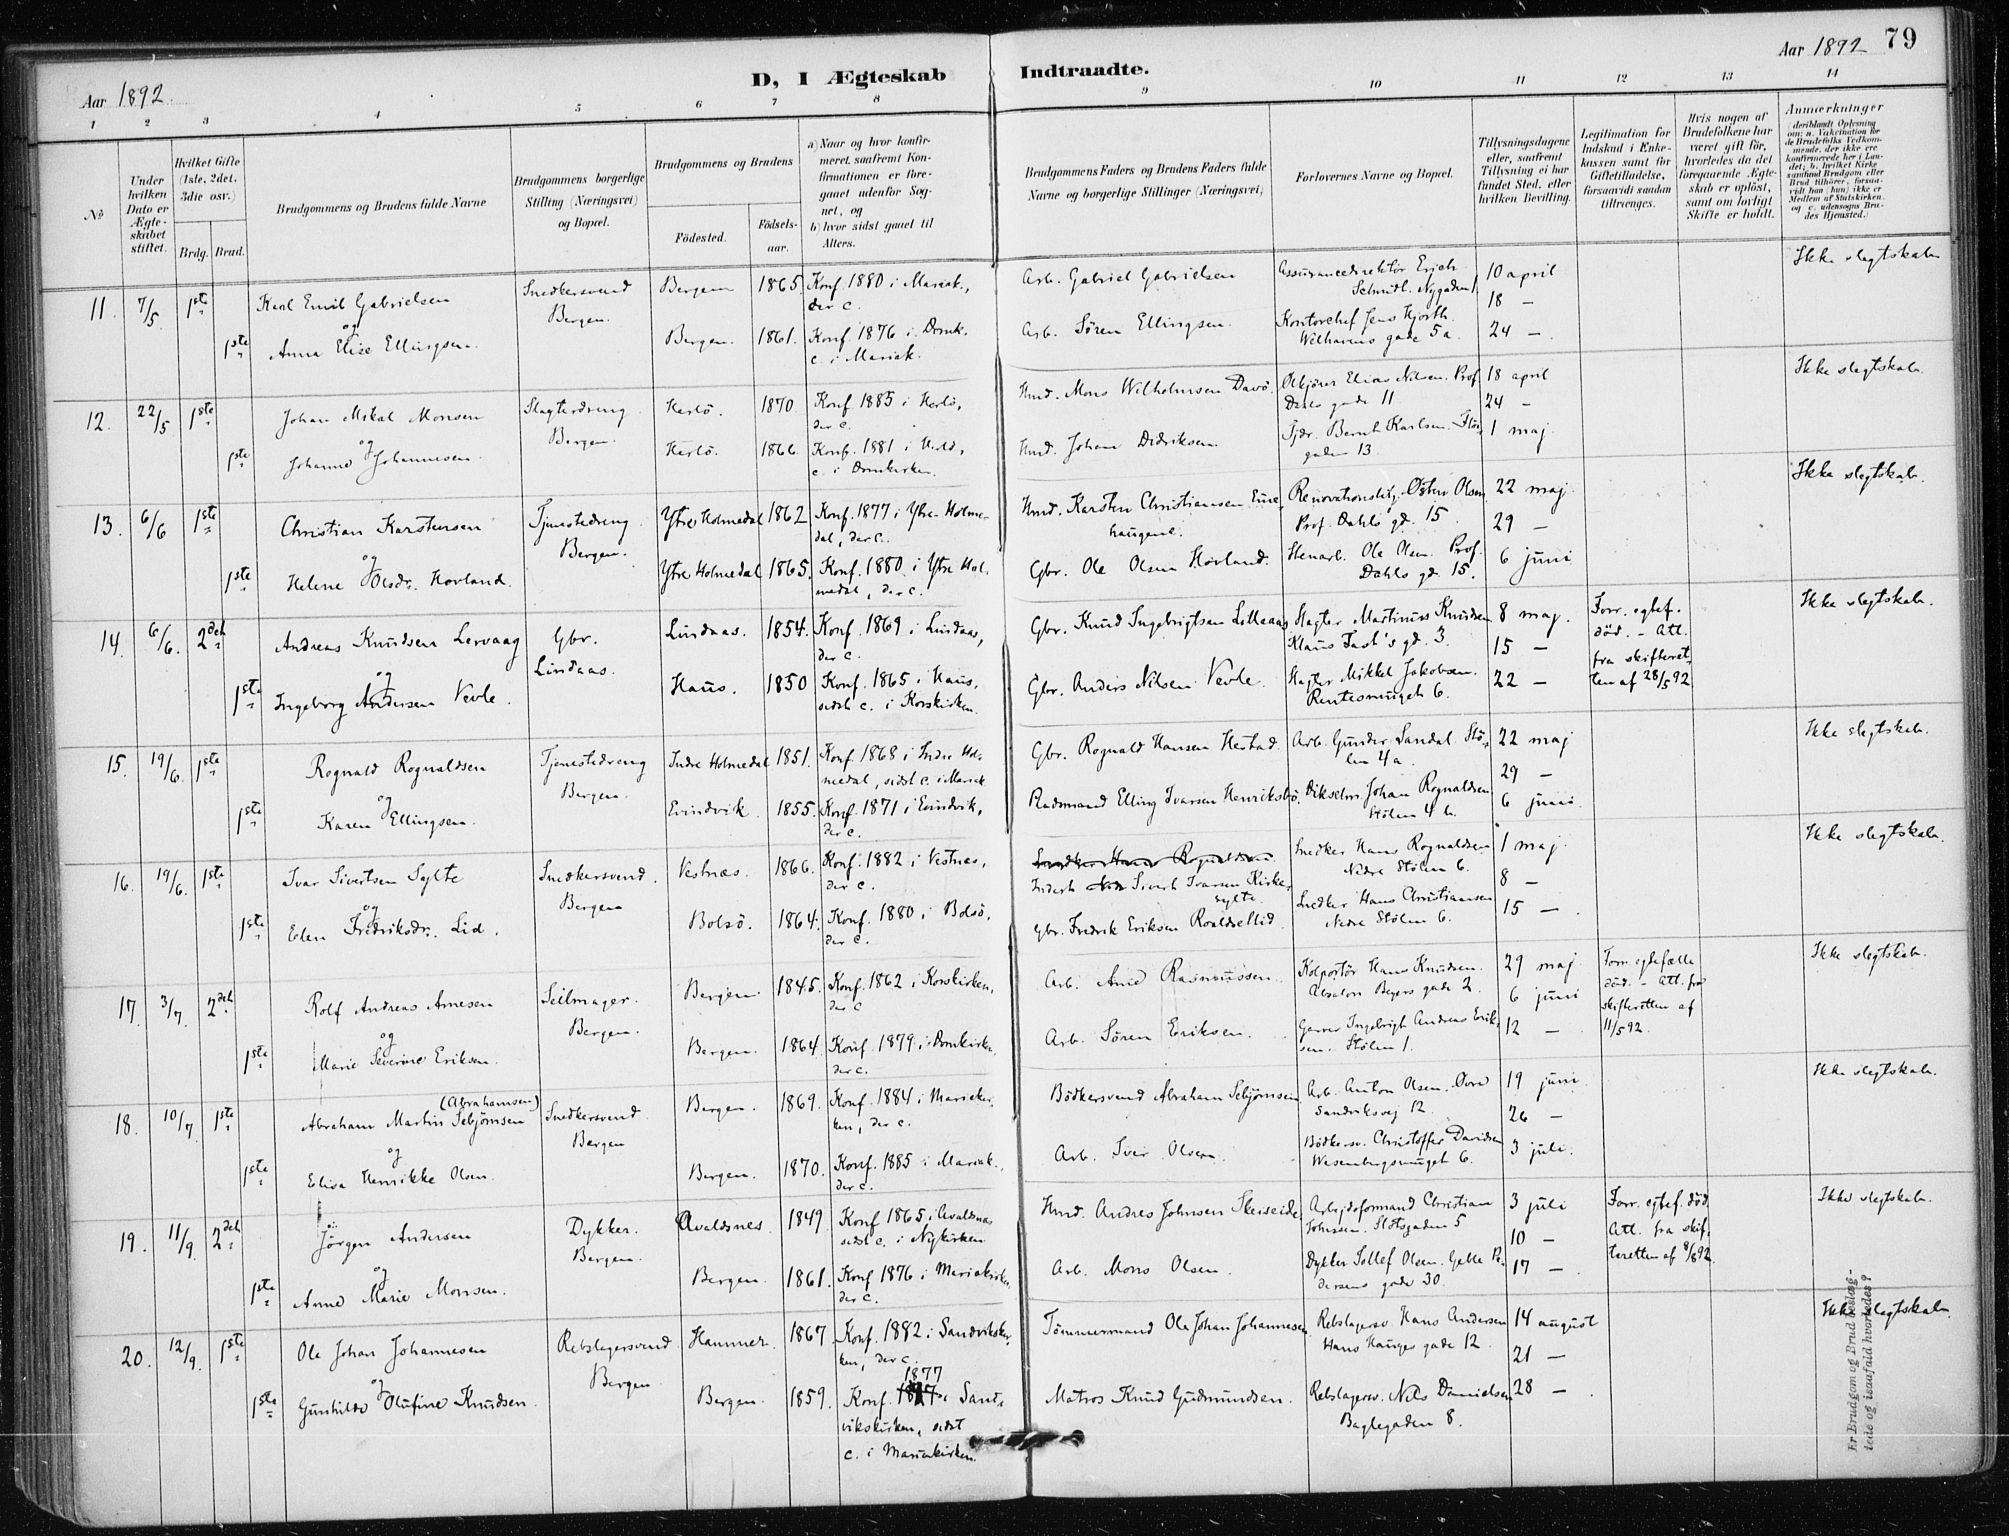 Aar 1892.
D, I Ægteskab Indtraadte.
Aar 1892 79
1 2 3 4 5 6 7 8 9 10 11 12 13 14
№
Under hvilken Dato er Ægteskabet stiftet.
Hvilket Gifte (1ste, 2det, 3die osv.)
Brdg. Brud.
Brudgommens og Brudens fulde Navne
Brudgommens borgerlige Stilling (Næringsvei) og Bopæl.
Brudgommens og Brudens
Fødested.
Fødselsaar.
a) Naar og hvor konfirmeret, saafremt Konfirmationen er foregaaet udenfor Sognet, og
b) hvor sidst gaaet til Alters.
Brudgommens Faders og Brudens Faders fulde Navne og borgerlige Stillinger (Næringsvei)
Forlovernes Navne og Bopæl.
Tillysningsdagene eller, saafremt Tillysning ei har fundet Sted, efter hvilken Bevilling.
Legitimation for Indskud i Enkekassen samt for Giftetilladelse, forsaavidt saadan tiltrænges.
Hvis nogen af Brudefolkene har været gift før, hvorledes da det foregaaende Ægteskab er opløst, samt om lovligt Skifte er holdt.
Anmærkninger
(deriblandt Oplysning om: a. Vakcination for de Brudefolks Vedkommende, der ikke ere konfirmerede her i Landet; b. hvilket Kirkesamfund Brudgom eller Brud tilhører, forsaavidt han (hun) ikke er Medlem af Statskirken, og c. udensogns Brudes Hjemsted.)
11. 7/5 1ste Karl Emil Gabrielsen Snedkersvend Bergen. Bergen 1865 Konf. 1880 i Mariak., der c. Arb. Gabriel Gabrielsen Assurancedirektör Erich Schmidt. Nygaden 1. 10 april 18 — Ikke slegtskab
og
1ste Anna Elise Ellingsen. Bergen. 1861. Konf. 1876 i Domk. c. i Mariak. Arb. Sören Ellingsen. Kontorchef Jens Hjorth. Welhavens gade 5a. 24 —.
12. 22/5 1ste Johan Mikal Monsen Slagterdreng Bergen. Herlö. 1870. Konf. 1885 i Herlö, der c. Hmd. Mons Wilhelmsen Davö. Olkjörer Elias Nilsen. Prof. Dahls gade 11. 18 april 24 — Ikke slegtskab.
og
1ste Johanne Johannesen. Herlö. 1866. Konf. 1881 i Herlö, c. i Domkirken. Hmd. Johan Didriksen. Bernt Karlsen. gaden 13. 1 maj.
13. 6/6 1ste Christian Karstensen Tjenestedreng. Bergen. Ytre Holmedal 1862 Konf. 1877 i Ytre Holmedal, der c. Hmd. Karsten Christiansen Eine, haugene. Renovationsbetj. Östen Olsen Prof. Dahls gd. 15. 22 maj. 29 — Ikke slegtskab.
og
1ste Helene Olsdr. Hovland. Ytre Holmedal 1865. Konf. 1880 i Ytre Holmedal, der c. Gbr. Ole Olsen Hovland. Stenarb. Ole Olsen. Prof. Dahls gd. 15. 6 juni
14. 6/6. 2det Andreas Knudsen Lervaag Gbr. Lindaas. Lindaas. 1854. Konf. 1869 i Lindaas, der c. Gbr. Knud Ingebrigtsen Lilleaas Slagter Martinus Knudsen Klaus Fast's gd. 3. 8 maj. 15 — Forr. egtef. död. - Att. fra skifteretten af 28/5 92 Ikke slegtskab.
og
1ste Ingeborg Andersen Vevle. Haus. 1850 Konf. 1865 i Haus, sidst c. i Korskirken. Gbr. Anders Nilsen Vevle. Slagter Mikkel Jakobsen. Rentesmuget 6. 22 —
15. 19/6. 1ste Rognald Rognaldsen Tjenestedreng Bergen. Indre Holmedal 1851. Konf. 1868 i Indre Holmedal, sidst c. i Mariak. Gbr. Rognald Hansen Hestad. Arb. Gunder Sandal. Stölen 4a. 22 maj 29 — Ikke slegtskab.
og
1ste Karen Ellingsen. Evindvik 1855. Konf. 1871 i Evindvik, der c. Rudsmand Elling Ivarsen Henriksbö. Johan Rognaldsen Stölen 4 b. 6 juni.
16. 19/6. 1ste Ivar Sivertsen Sylte Snedkersvend. Bergen Vestnæs. 1866. Konf. 1882 i Vestnæs, der c. Snedker Hans Rognaldsen Inderst Sivert Ivarsen Kirkesylte. Snedker Hans Rognaldsen. Nedre Stölen 6. 1 maj. 8 — Ikke slegtskab.
og
1ste Elen Fredriksdr. Lid. Bolsö. 1864. Konf. 1880 i Bolsö, der c. Gbr. Fredrik Eriksen Roaldsetlid. Snedker Hans Christiansen Nedre Stölen 6. 15 —.
17. 3/7. 2det Rolf Andreas Arnesen Seilmager. Bergen. Bergen. 1845. Konf. 1862 i Korskirken, der c Arb. Arne Rasmussen. Kolportör Hans Knudsen. Absalon Beyers gade 2. 29 maj. 6 juni Forr. egtefælle död. - Att. fra skifteretten af 11/5 92. Ikke slegtskab.
og
1ste Marie Severine Eriksen. Bergen. 1864. Konf. 1879 i Domkirken, der c. Arb. Sören Eriksen. Garver Ingebrigt Andreas Eriksen. Stölen 1. 12 —
18. 10/7. 1ste (Abrahamsen) Abraham Martin Sebjörnsen Snedkersvend. Bergen Bergen. 1869. Konf. 1884 i Mariekirken, der c. Bödkersvend Abraham Sebjörnsen Arb. Anton Olsen. Övre Sandviksvej 12. 19 juni. 26 — Ikke slegtskab.
og
1ste Elisa Henrikke Olsen. Bergen. 1870. Konf. 1885 i Mariak., der c. Arb. Iver Olsen. Bödkersv. Christoffer Davidsen Wesenbergsmuget 6. 3 juli.
19. 11/9. 2det Jörgen Andersen Dykker. Bergen. Avaldsnes. 1849. Konf 1865 i Avaldsnes sidst c. i Nykirken Hmd. Andres Johnsen Skeiseide. Arbejdsformand Christian Johnsen. Slotsgaden 5 3 juli 10 — Forr. egtef. död. Att. fra skifteretten af 8/8 92. Ikke slegtskab.
og
1ste Anne Marie Monsen. Bergen. 1861. Konf 1876 i Mariakirken, der c. Arb. Mons Olsen. Dykker Tollef Olsen. Geble Pedersens gade 30. 17 —.
20. 12/9. 1ste Ole Johan Johannesen Rebslagersvend Bergen Hammer. 1867. Konf. 1882 i Sandvikskirken, der c. Tömmermand Ole Johan Johannesen Rebslagersv. Hans Andersen Hans Hauges gade 12. 14 august 21 — Ikke slegtskab
og
1ste Gunhilde Olufine Knudsen. Bergen. 1859. Konf. 1877 i Sandvikskirken, sidst c. i Mariakirken. Matros Knud Gudmundsen. Rebslagersv. Nils Danielsen Baglegaden 8. 28 —.
Er Brudgom og Brud beslægtede og isaafald hvorledes?